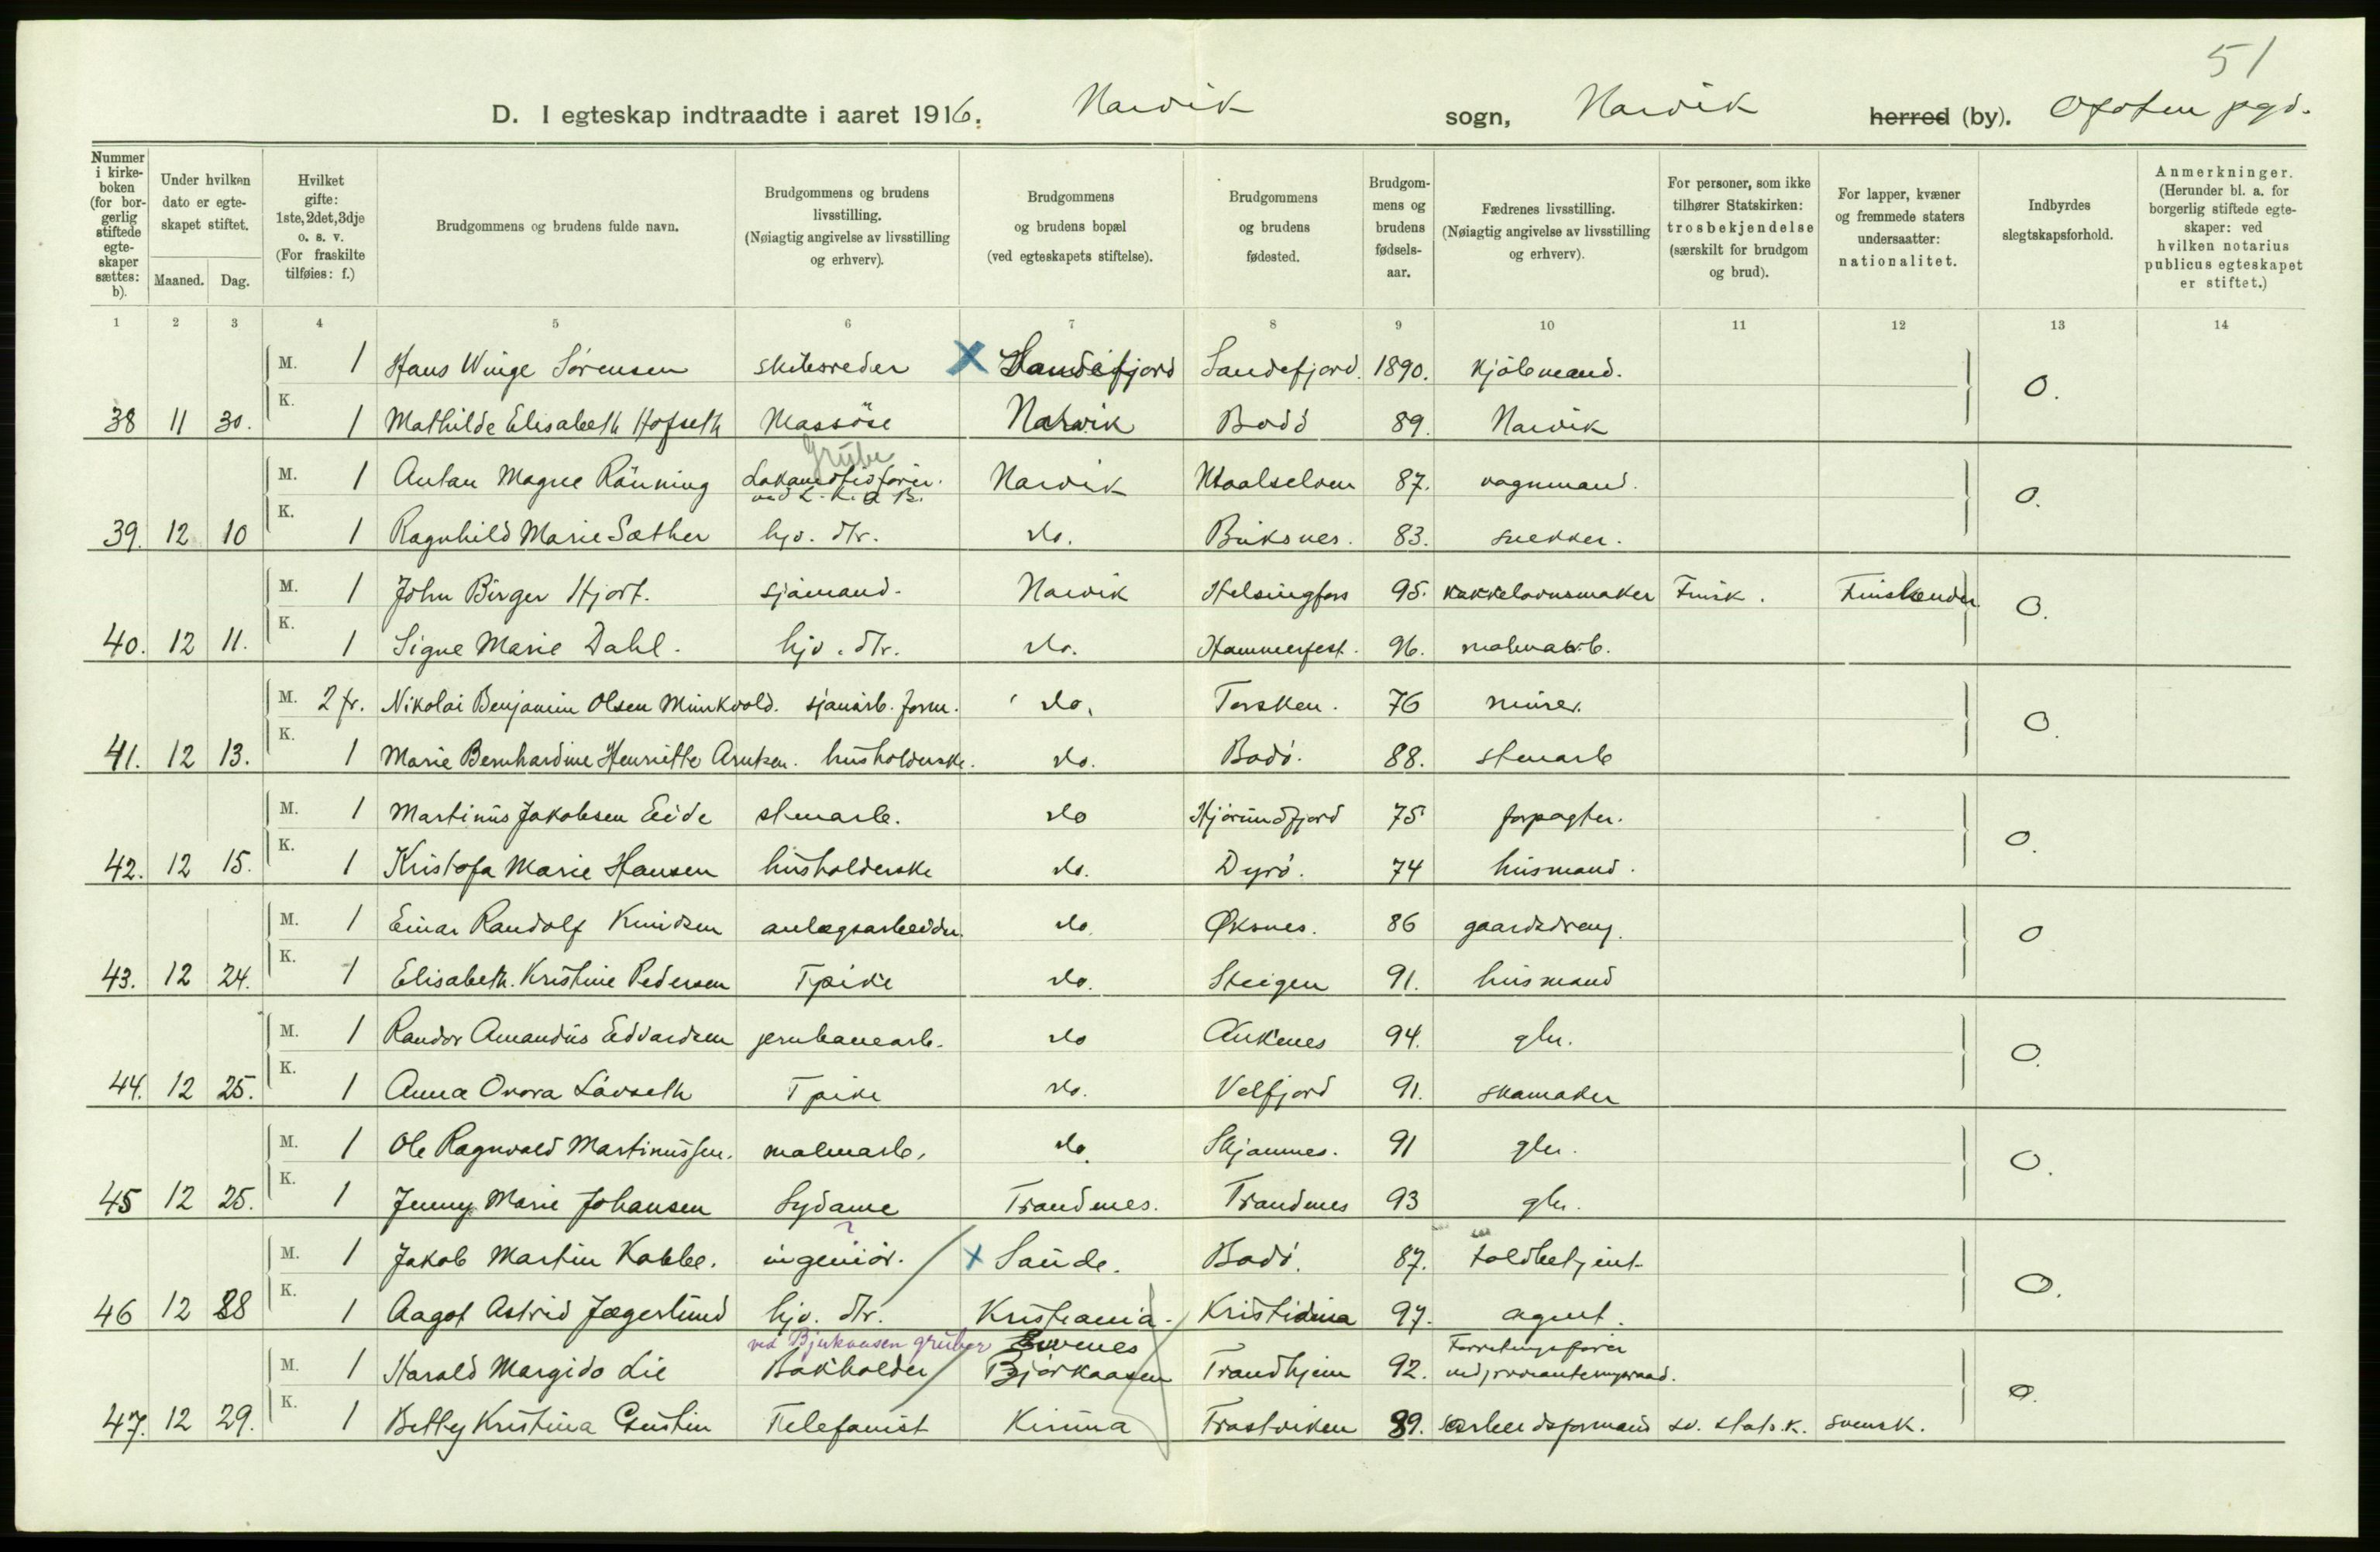 51
D. I egteskap indtraadte i aaret 1916. Narvik sogn, Narvik herred (by). Ofoten pgd.
Nummer i kirkeboken (for borgerlig stiftede egteskaper sættes: b).
Under hvilken dato er egteskapet stiftet.
Maaned. Dag.
Hvilket gifte: 1ste, 2det, 3dje o. s. v. (For fraskilte tilføies: f.)
Brudgommens og brudens fulde navn.
Brudgommens og brudens livsstilling. (Nøiagtig angivelse av livsstilling og erhverv).
Brudgommens og brudens bopæl (ved egteskapets stiftelse).
Brudgommens og brudens fødested.
Brudgommens og brudens fødselsaar.
Fædrenes livsstilling. (Nøiagtig angivelse av livsstilling og erhverv).
For personer, som ikke tilhører Statskirken: trosbekjendelse (særskilt for brudgom og brud).
For lapper, kvæner og fremmede staters undersaatter: nationalitet.
Indbyrdes slegtskapsforhold.
Anmerkninger. (Herunder bl. a. for borgerlig stiftede egteskaper: ved hvilken notarius publicus egteskapet er stiftet.)
1 2 3 4 5 6 7 8 9 10 11 12 13 14
M. 1 Hans Winge Sörensen skibsreder X Sandefjord Sandefjord. 1890. kjöbmand. 0.
38 11 30. K. 1 Mathilde Elisabeth Hofseth Massöse Narvik Bodö 89. Narvik
Grube
M. 1 Anton Magne Rönning Lokomotivförer. Narvik Maalselven 87. vognmand. 0.
ved L. K. A B.
39. 12 10 K. 1 Ragnhild Marie Sæther hjv. dtr. do. Buksnes. 83. snekker.
M. 1 John Birger Hjort. sjömand. Narvik Helsingfors 95. kakkelovnsmaker Finsk. Finlænder 0.
40. 12 11. K. 1 Signe Marie Dahl. hjv. dtr. do. Hammerfest. 96. malmarb.
M. 2 fr. Nikolai Benjamin Olsen Munkvold. sjauarb. form. do. Torsken. 76 murer. 0.
41. 12 13. K. 1 Marie Bernhardine Henriette Arntsen. husholderske. do. Bodö. 88. stenarb
M. 1 Martinus Jakobsen Eide stenarb. do Hjörundfjord 75 forpagter. 0.
42. 12 15. K. 1 Kristofa Marie Hansen husholderske do. Dyrö. 74 husmand.
M. 1 Einar Randolf Knudsen anlægsarbeider. do. Øksnes. 86 gaardsdreng. 0
43. 12 24. K. 1 Elisabeth Kristine Pedersen Tpike do. Steigen 91. husmand
M. 1 Randor Amandus Edvardsen jernbanearb. do Ankenes 94. gbr. 0.
44. 12 25. K. 1 Anna Ovora Lövseth Tpike do. Velfjord 91. skomaker
M. 1 Ole Ragnvald Martinussen. malmarb. do. Skjönnes. 91 gbr. 0.
45 12 25. K. 1 Jenny Marie Johansen Sydame Trondenes. Trondenes 93 gbr.
M. 1 Jakob Martin Kobbe. ingeniör. x Saude. Bodö. 87. toldbetjent 0.
46 12 28 K. 1 Aagot Astrid Jægerlund hjv. dtr. Kristiania. Kristiania 97. agent.
ved Bjerkaasen gruber Evenes Forretningsförer
M. 1 Harald Margido Lie Bokholder Björkaasen Trondhjem 92. ved provianteringsraad. 0.
47. 12 29. K. 1 Betty Kristina Gustin Telefonist Kiruna Trostviken 89. arbeidsformand sv. stats.k. svensk.